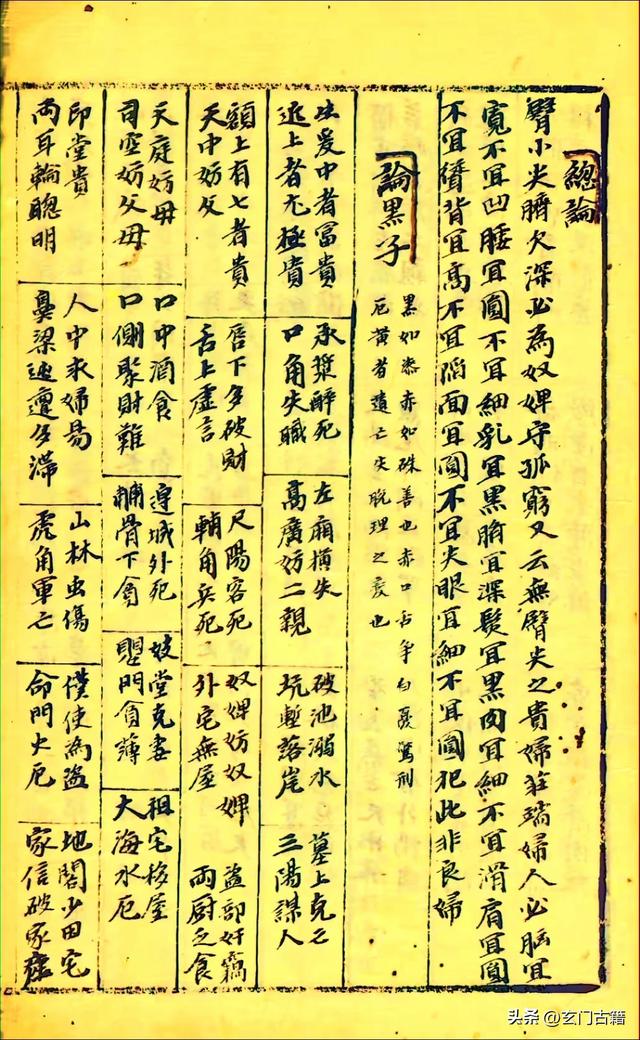 總論
臀小尖臍欠深必為奴婢守孤窮又云無臀尖之貴婦莊瑞婦人必腦宜
寬不宜凹腰宜圓不宜細乳宜黑臍宜深髮宜黑肉宜細不宜滑肩宜圓
不宜背宜高不宜陷面宜圓不宜尖眼宜細不宜圓犯此非良婦
論黑子
黑如漆赤如硃善也赤口舌爭白憂驚刑
厄黃者遺亡失脫理之變也
生髮中者富貴 承漿醉死 左廂橫失 破池溺水 墓上克亡
近上者尤極貴 口角失職 高廣妨二親 坑塹落崖 三陽謀人
額上有七者貴 唇下多破財 尺陽客死 奴婢妨奴婢 盜部奸竊
天中妨父 舌上虛言 輔角兵死 外宅無屋 兩厨乏食
天庭妨母 口中酒食 邊城外死 妓堂克妻 祖宅移屋
司空妨父母 口側聚財難 輔骨下貧 門貧薄 大海水厄
印堂貴 人中求婦易 山林虫傷 僕使為盜 地閣少田宅
兩耳輪聰明 鼻梁迍邅多滯 虎角軍亡 命門火厄 家信破家虛
头条 @玄门古籍